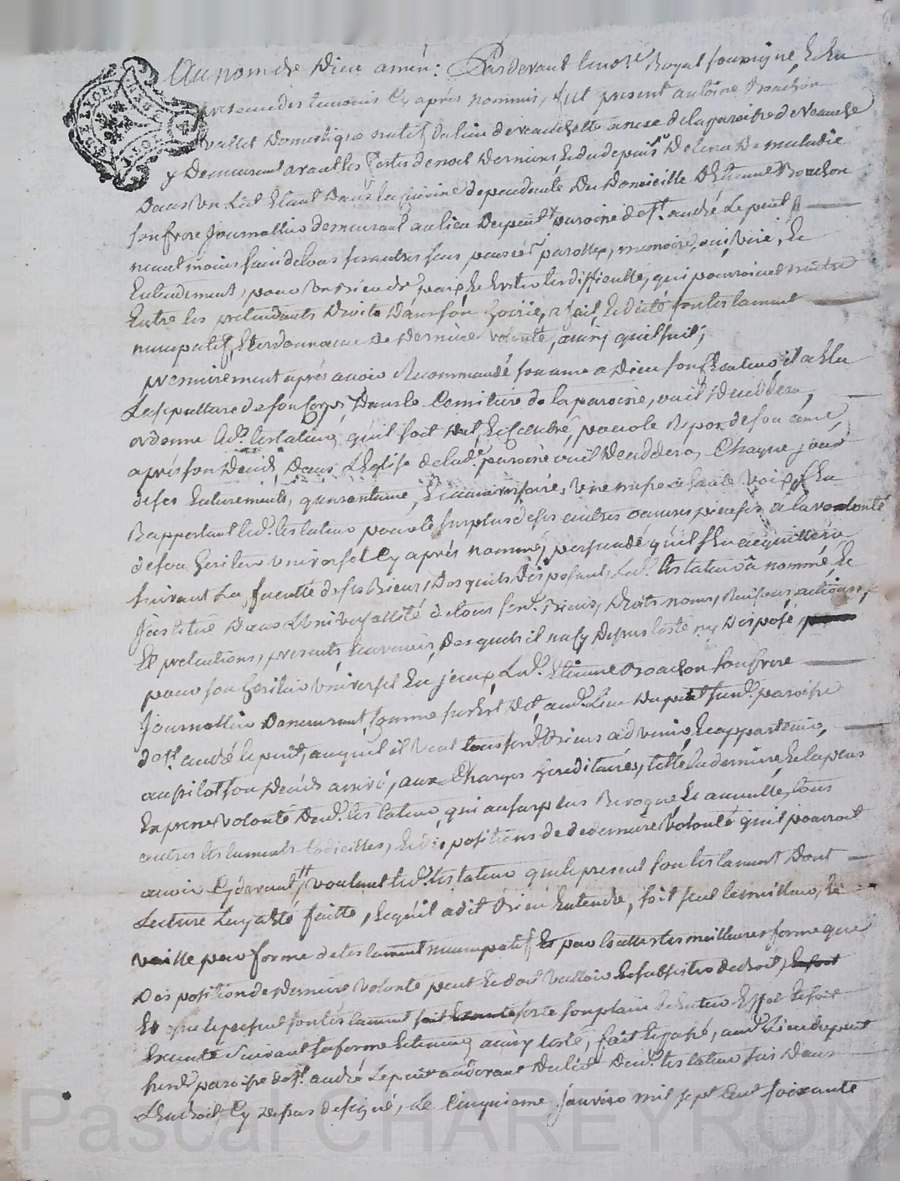 Au nom de Dieu amen: Pardevant le no.re Royal soussigné, et en
presence des temoins cy après nommés, fut present antoine Brachon
vallet Domestique natif du lieu de veauchette annexe de la paroisse de Veauche
y Demeurant avant les fêtes de noel Dernieres et du depuis Detenu De maladie
Dans un Lit Etant Dans la Cuisine dependente Du Domicille D'Etienne Brachon
son frere Journallier demeurant au lieu Du paroisse de s.t andré Le puit
neantmoins sain de tous ses autres sens pensée, parolle, memoire, ouï, veüe, Et
Entendement, pour de paix Et Eviter les difficultés, qui pourroient naître
Entre les prétendants Droits Dans son hoirie, a fait Et dicté son testament
nuncupatif Et ordonnance de Dernière volonté, ainsi que suit;
premierement après avoir Recommandé son ame a Dieu son Createur il a Elu
La sepulture de son Corps Dans le Cimitiere de la paroisse, ou il Decedera,
ordonne led. testateur, qu'il soit dit, et Célébré, pour le Repos de son ame
après son Decés, Dans L'Eglise de lad. paroisse ou il Decedera, Chaque jour
de ses Enterrements, quarantaine, Et anniversaire, une messe a haute Voix, s'En
Rapportant led. testateur pour le surplus de ses autres oeuvres pieuses a la volonté
de son heritier universel Cy après nommé, persuadé qu'il s'En acquittera
suivant La faculté de ses Biens, Desquels Disposant, Led. testateur a nommé Et
Institué Dans L'universallité de tous ses. Biens, Droits noms, Raisons, actions,
Et pretentions, presents, Et avenir, Des quels il n'a cy Dessus testé ny Disposé
pour son heritier universel Led. Etienne Brachon son frere
Journallier Demeurant aud. Lieu Du paroisse
de s.t andré le puit, auquel il veut tous sesd. Biens advenir, Et appartenir,
au pilot son Decés arrivé, aux Charges hereditaires, telle La derniere Et la plus
Expresse volonté Dud. testateur, qui au surplus Revoque Et annulle, tous
autres testaments Codicilles, Et dispositions de derniere volonté qu'il pourroit
avoir Cy devant fait, voulant led. testateur que le present son testament Dont
Lecture Luy a été faitte, Et qu'il a dit Bien Entendre, soit seul le meilleur, Et
vaille pour forme de testament nuncupatif Et par toutes les meilleures forme que
Disposition de Derniere volonté peut Et doit valloir Et subsister de droit,
Et que le present son testament sorte son plain Et Entier Effet Et soit
Executé suivant sa forme Et teneur, ainsy testé, fait Et passé, aud. Lieu
paroisse de s.t andré Le puit audevant Du Lit Dud. testateur sis Dans
L'Endroit Cy Dessus designé, Le Cinquieme Janvier mil sept Cent soixante
Pascal CHAREYRON